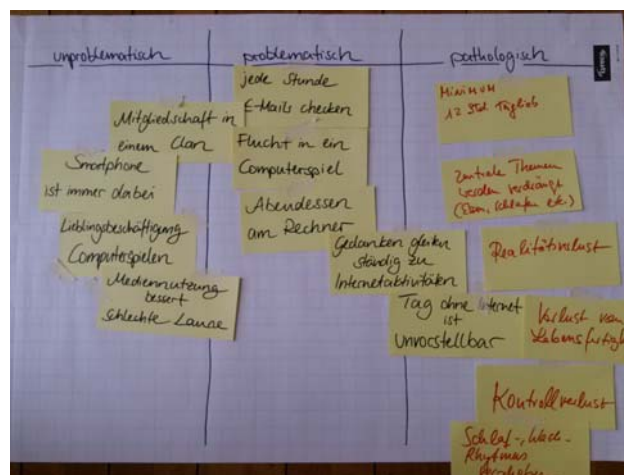 unproblematisch
problematisch
pathologisch
Mitgliedschaft in
einem Clan
Smartphone
ist immer dabei
Lieblingsbeschäftigung
Computerspielen
Mediennutzung
bessert
schlechte Laune
jede Stunde
E-Mails checken
Flucht in ein
Computerspiel
Abendessen
am Rechner
Gedanken gleiten
ständig zu
Internetaktivitäten
Tag ohne Internet
ist
unvorstellbar
Minimum
12 Std. täglich
Zentrale Themen
werden verdrängt
(Essen, schlafen etc.)
Realitätsverlust
Verlust von
Kontrollverlust
Schlaf-, Wach-
Rhythmus